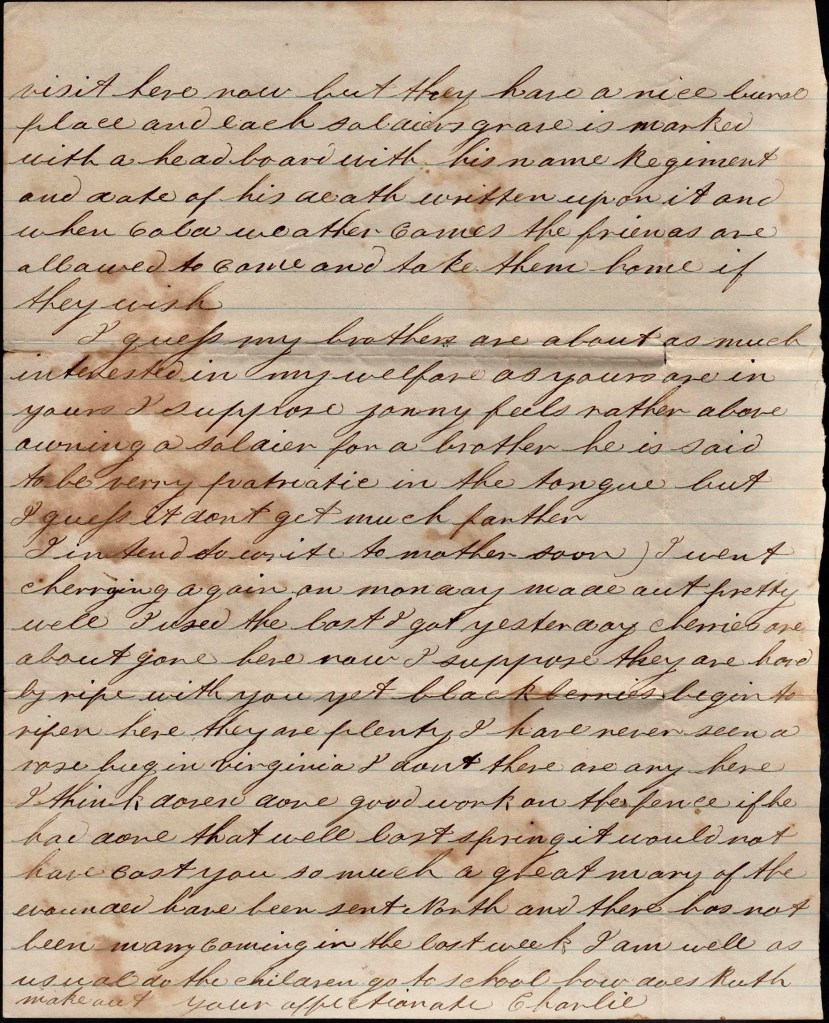 visit here now but they have a nice burial
place and each soldiers grave is marked
with a head board with his name Regiment
and date of his death written upon it and
when cold weather comes the friends are
allowed to come and take them home if
they wish
I guess my brothers are about as much
interested in my welfare as yours are in
yours I suppose jonny feels rather above
owning a soldier for a brother he is said
to be verry patriotic in the tongue but
I guess it dont get much farther
I intend to write to mother soon ) I went
cherrying again on monday made out pretty
well I used the last I got yesterday cherries are
about gone here now I suppose they are hard
ly ripe with you yet black berries begin to
ripen here they are plenty I have never seen a
rose bug in virginia I dout there are any here
I think done good work on the fence if he
had done that well last spring it would not
have cost you so much a great many of the
wounded have been sent North and there has not
been many coming in the last week I am well as
usual do the children go to school how does Ruth
make out your affectionate Charlie